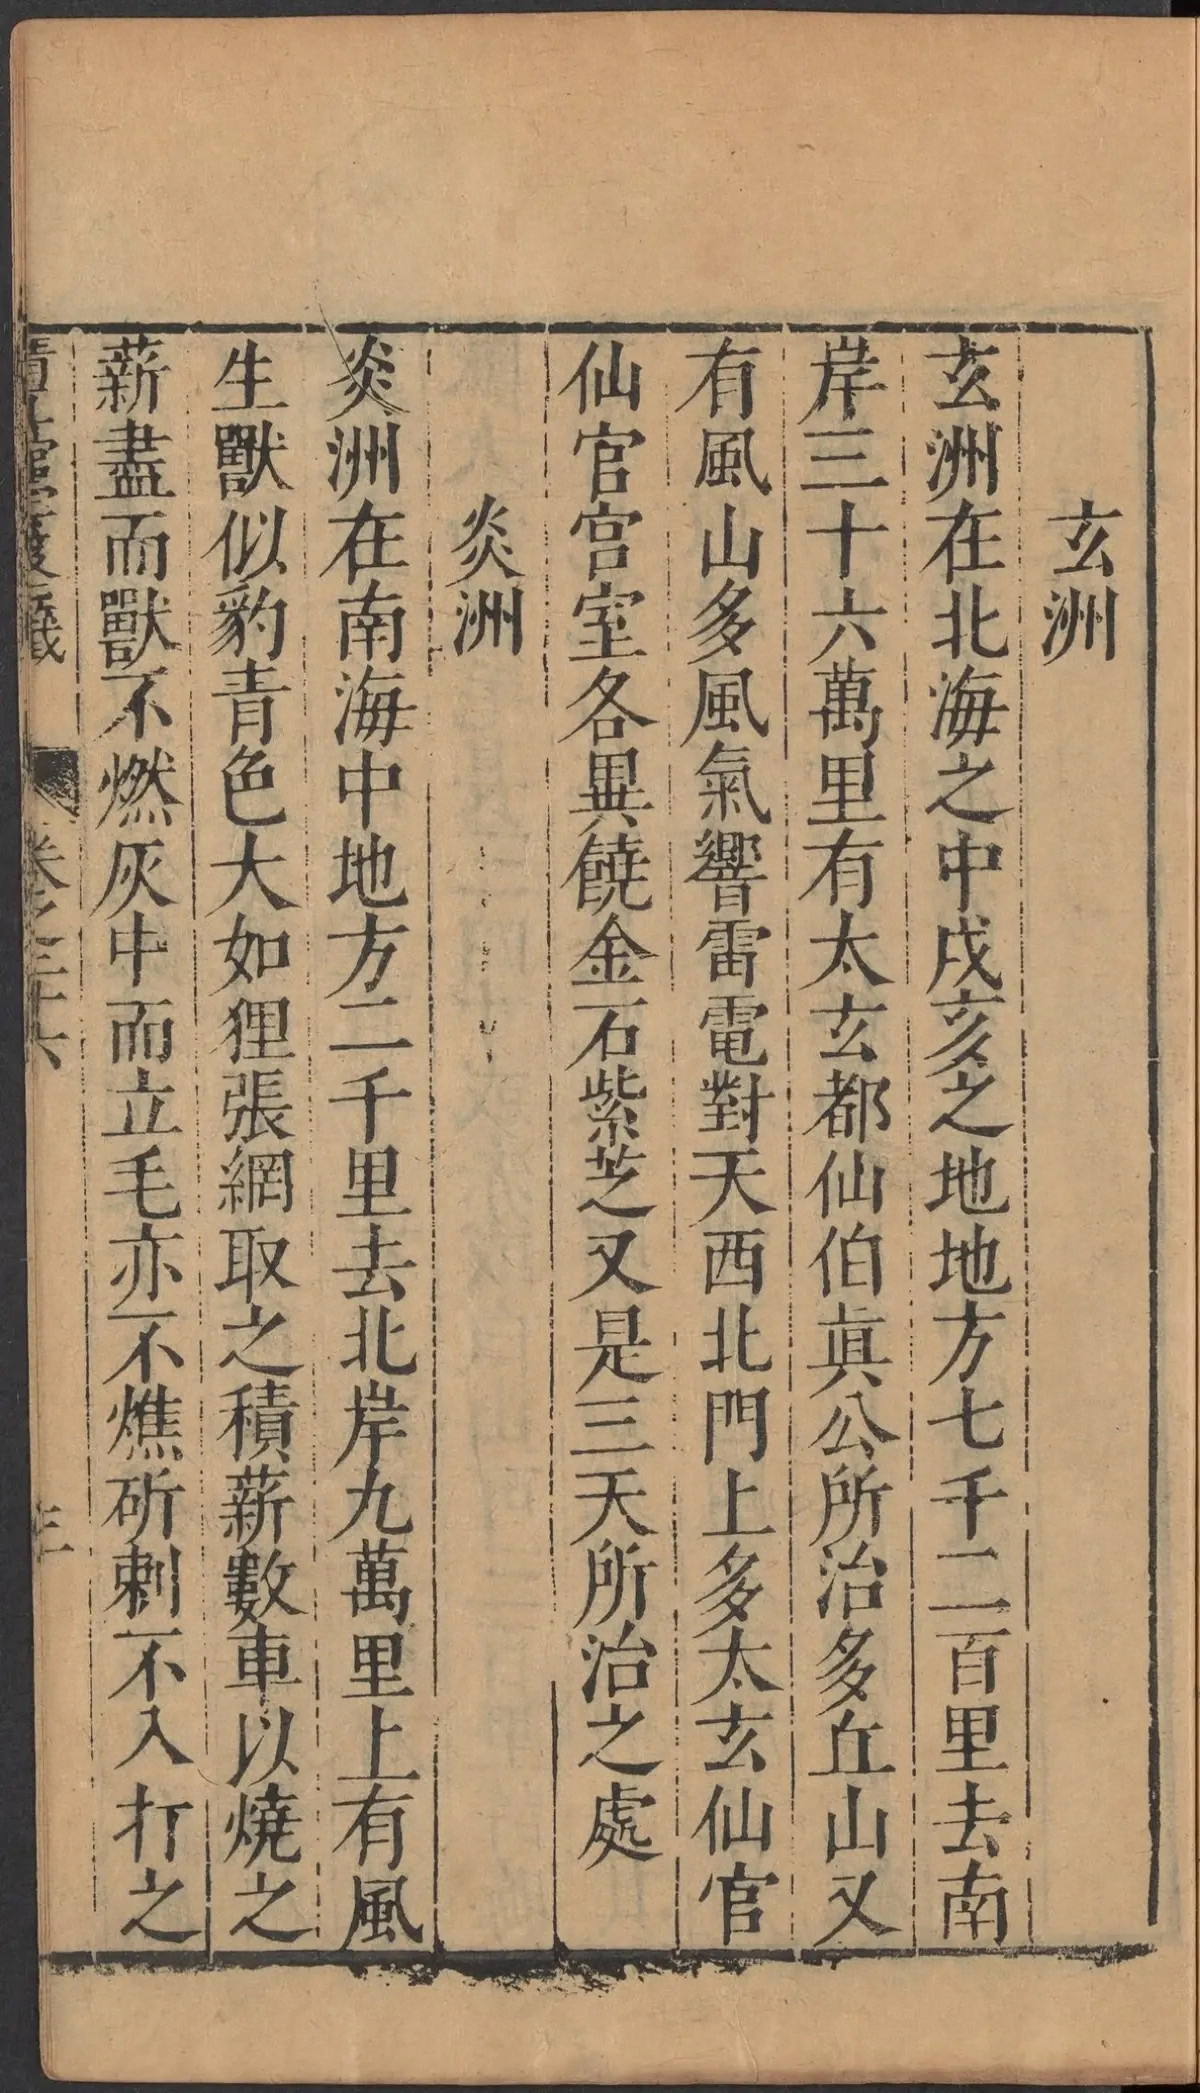 玄洲
玄洲在北海之中戌亥之地地方七千二百里去南
岸三十六萬里有太玄都仙伯眞公所治多丘山又
有風山多風氣響雷電對天西北門上多太玄仙官
仙官宮室各異饒金石紫芝又是三天所治之處
炎洲
炎洲在南海中地方二千里去北岸九萬里上有風
生獸似豹青色大如狸張網取之積薪數車以燒之
薪盡而獸不燃灰中而立毛亦不燋斫刺不入打之
卷之三十六